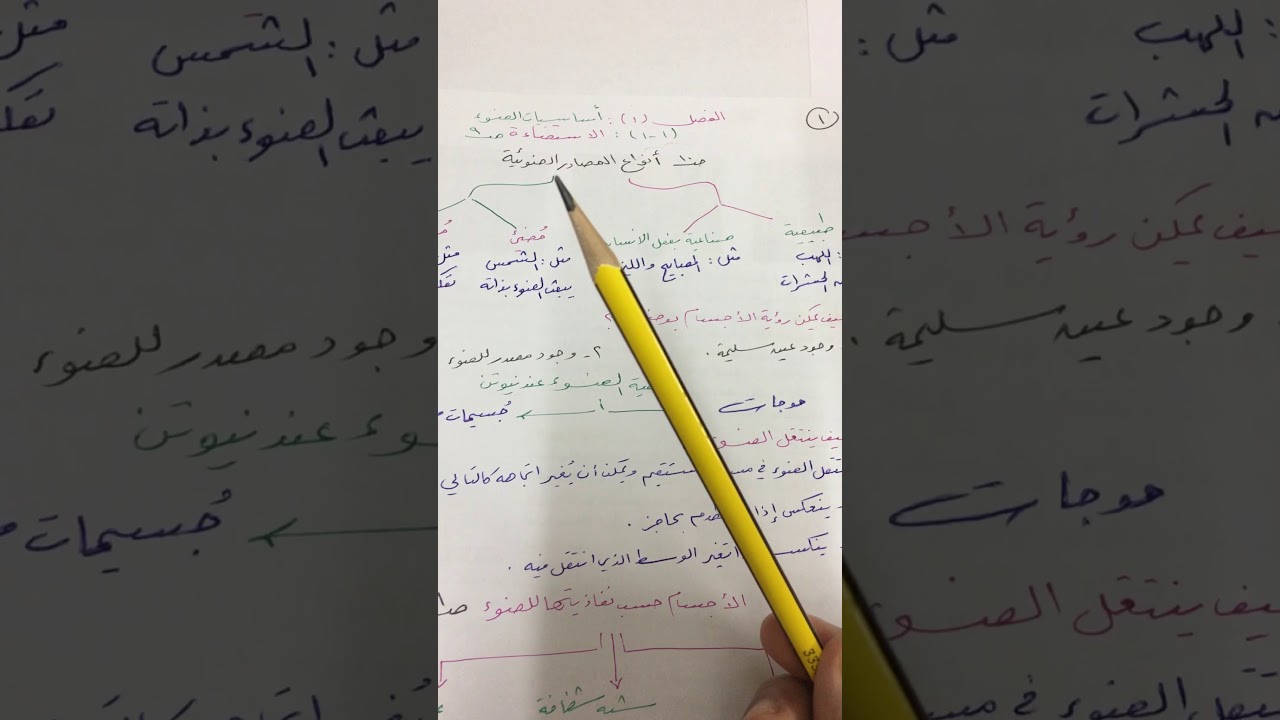 ١
الفصل (١): أساسيات الضوء
(١-١): الاستضاءة ص٩
ص١٠ أنواع المصادر الضوئية
طبيعية
صناعية بفعل الانسان
مُضئ
مثل: المصابيح والليزر
مثل: الشمس
مثل
اللهب
الحشرات
يبعث الضوء بذاته
كيف يمكن رؤية الأجسام بوضوح؟
وجود عين سليمة.
٢- وجود مصدر للضوء
الضوء عند نيوتن
موجات
أ
جُسيمات
كيف ينتقل الضوء
ينتقل الضوء في مستقيم ويمكن أن يُغير اتجاهه كالتالي
- ينعكس إذا بحاجز.
تغير الوسط الذي انتقل فيه.
الأجسام حسب نفاذيتها للضوء
شبه شفافة